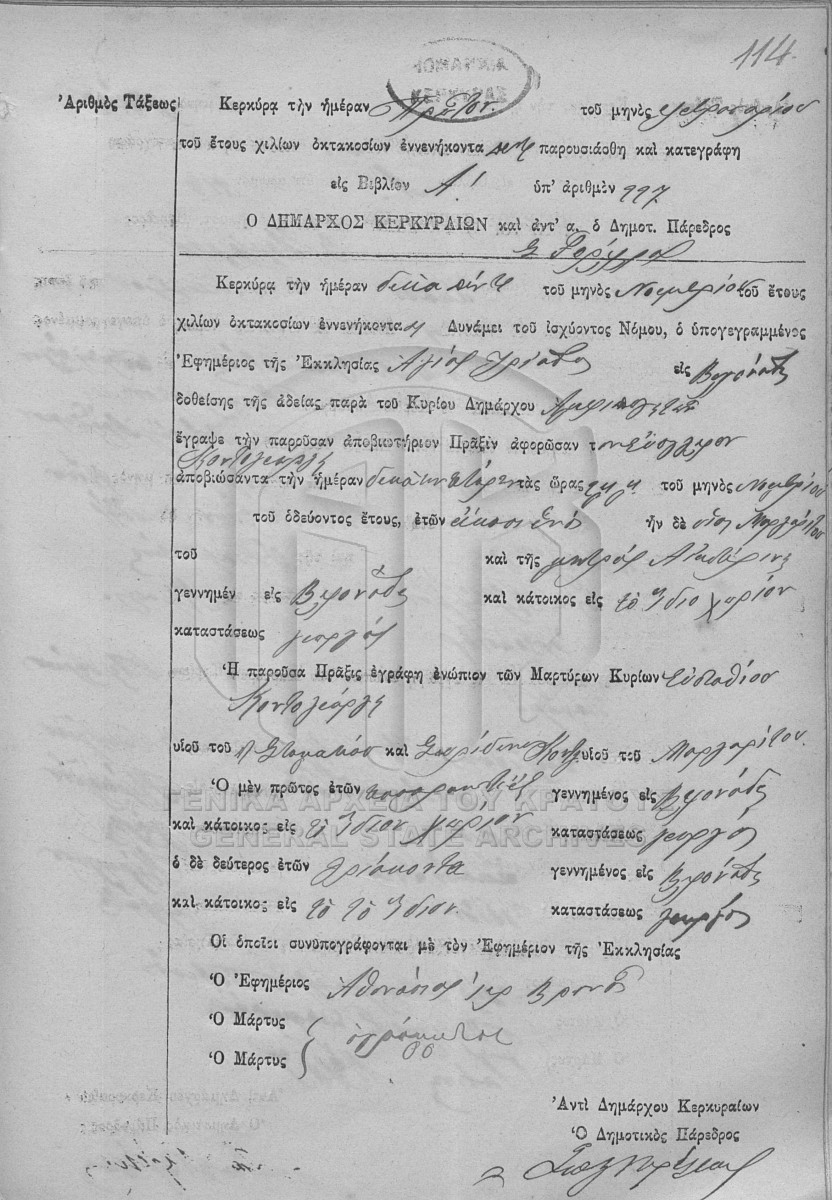 114
Ἀριθμὸς Τάξεως
Κερκύρᾳ τὴν ἡμέραν Πρώτην τοῦ μηνὸς Φεβρουαρίου
τοῦ ἔτους χιλίων ὀκτακοσίων ἐννενήκοντα παρουσιάσθη καὶ κατεγράφη
εἰς Βιβλίον Α! ὑπ' ἀριθμὸν 117
Ο ΔΗΜΑΡΧΟΣ ΚΕΡΚΥΡΑΙΩΝ καὶ ἀντ' α. ὁ Δημοτ. Πάρεδρος
Κερκύρᾳ τὴν ἡμέραν δεκα πέντε τοῦ μηνὸς Νοεμβρίου τοῦ ἔτους
χιλίων ὀκτακοσίων ἐννενήκοντα Δυνάμει τοῦ ἰσχύοντος Νόμου, ὁ ὑπογεγραμμένος
Ἐφημέριος τῆς Ἐκκλησίας Ἁγίας Τριάδος εἰς Βελονάδες
δοθείσης τῆς ἀδείας παρὰ τοῦ Κυρίου Δημάρχου
ἔγραψε τὴν παροῦσαν ἀποβιωτήριον Πρᾶξιν ἀφορῶσαν τ
Κοντογεώργη
ἀποβιώσαντα τὴν ἡμέραν δεκατέσσαρες τὰς ὥρας π.μ. τοῦ μηνὸς Νοεμβρίου
τοῦ ὁδεύοντος ἔτους, ἐτῶν εἴκοσι ἑνὸς ἦν δὲ υἱος Μαργαρίτου
τοῦ καὶ τῆς μητρὸς Αἰκατερίνη
γεννημέν εἰς Βελονάδες καὶ κάτοικος εἰς τὸ ἴδιο χωρίον
καταστάσεως γεωργός
Ἡ παροῦσα Πρᾶξις ἐγράφη ἐνώπιον τῶν Μαρτύρων Κυρίων Εὐσταθίου
Κοντογεώργη
υἱοῦ τοῦ π Σταματίου καὶ Σπυρίδωνα Κοντ υἱοῦ τοῦ Μαργαρίτου.
Ὁ μὲν πρῶτος ἐτῶν γεννημένος εἰς Βελονάδες
καὶ κάτοικος εἰς τὸ ἴδιον χωρίον καταστάσεως γεωργός
ὁ δὲ δεύτερος ἐτῶν τριάκοντα γεννημένος εἰς Βελονάδες
καὶ κάτοικος εἰς τὸ τὸ ἴδιον. καταστάσεως γεωργός
Οἱ ὁποῖοι συνυπογράφονται μὲ τὸν Ἐφημέριον τῆς Ἐκκλησίας
Ὁ Ἐφημέριος Ἀθανάσιος ἱερ
Ὁ Μάρτυς ἀγράμματοι
Ὁ Μάρτυς
Ἀντὶ Δημάρχου Κερκυραίων
Ὁ Δημοτικὸς Πάρεδρος
ΓΕΝΙΚΑ ΑΡΧΕΙΑ ΤΟΥ ΚΡΑΤΟΥΣ
GENERAL STATE ARCHIVES